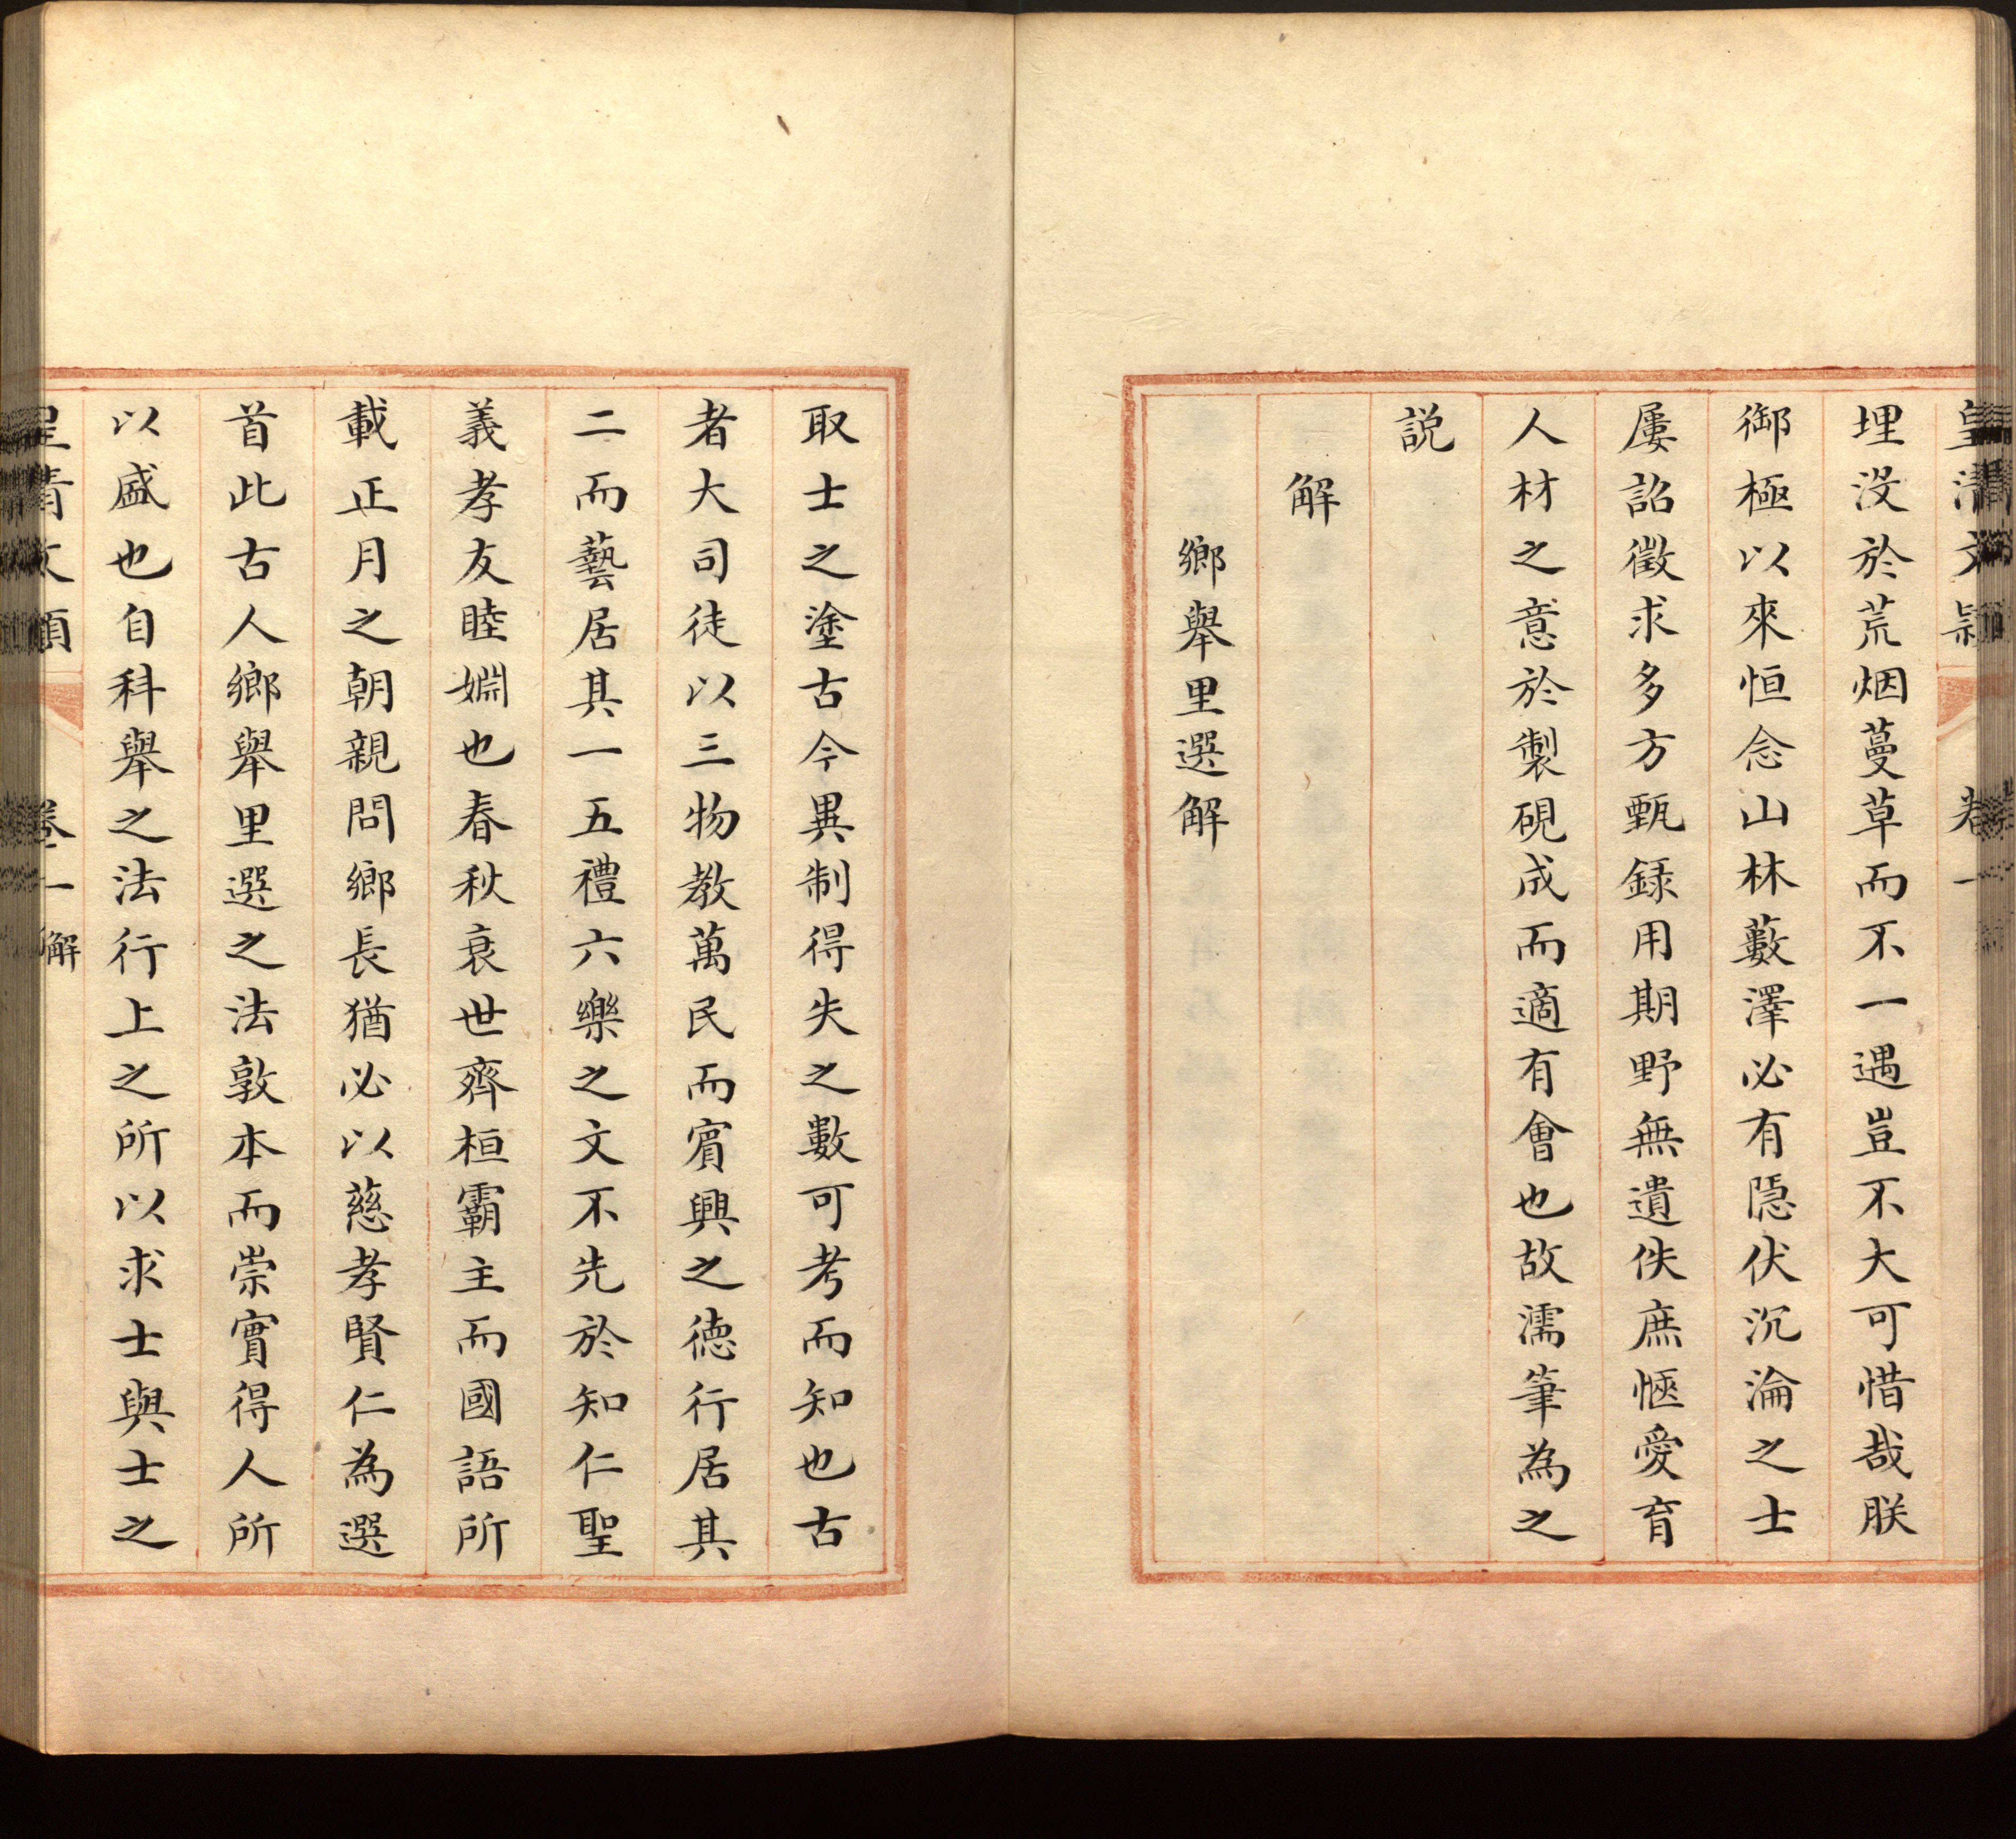 皇清文穎 卷一
埋没於荒烟蔓草而不一遇豈不大可惜哉朕
御極以來恒念山林藪澤必有隠伏沉淪之士
屢詔徵求多方甄録用期野無遺佚庶愜愛育
人材之意於製硯成而適有會也故濡筆為之
説
解
鄉舉里選解
取士之塗古今異制得失之數可考而知也古
者大司徒以三物教萬民而賓興之徳行居其
二而藝居其一五禮六樂之文不先於知仁聖
義孝友睦婣也春秋衰世齊桓霸主而國語所
載正月之朝親問鄉長猶必以慈孝賢仁為選
首此古人鄉舉里選之法敦本而崇實得人所
以盛也自科舉之法行上之所以求士與士之
皇清文穎 卷一 解